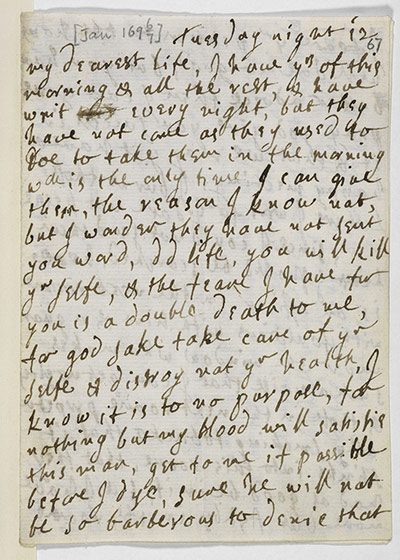 [Jan 169 6/7] Tuesday night 12
67
my dearest life, I have yrs of this
morning & all the rest, & have
writ every night, but they
have not come as they used to
doe to take them in the morning
wch is the only time I can give
them, the reason I know nat,
but I wonder they have not sent
you word, dd life, you will kill
yr selfe, & the feare I have for
you is a double death to me,
for god sake take care of yr
selfe & distroy nat yr health, I
know it is to no purpose, for
nothing but my blood will satisfie
this man, get to me if possible
before I dye, sure he will nat
be so barberous to denie that